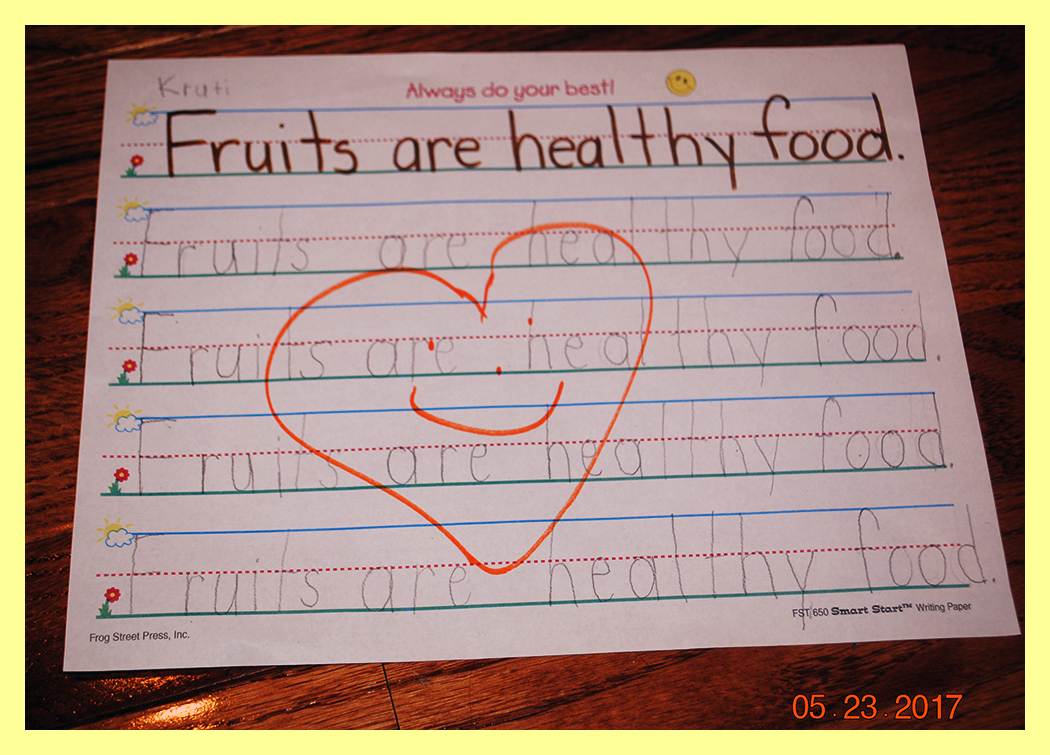 Kruti
Always do your best!
Fruits are healthy food.
Fruits are healthy food.
Fruits are healthy food.
Fruits are healthy food.
Fruits are healthy food.
FST 650 Smart Start™ Writing Paper
Frog Street Press, Inc.
05.23.2017